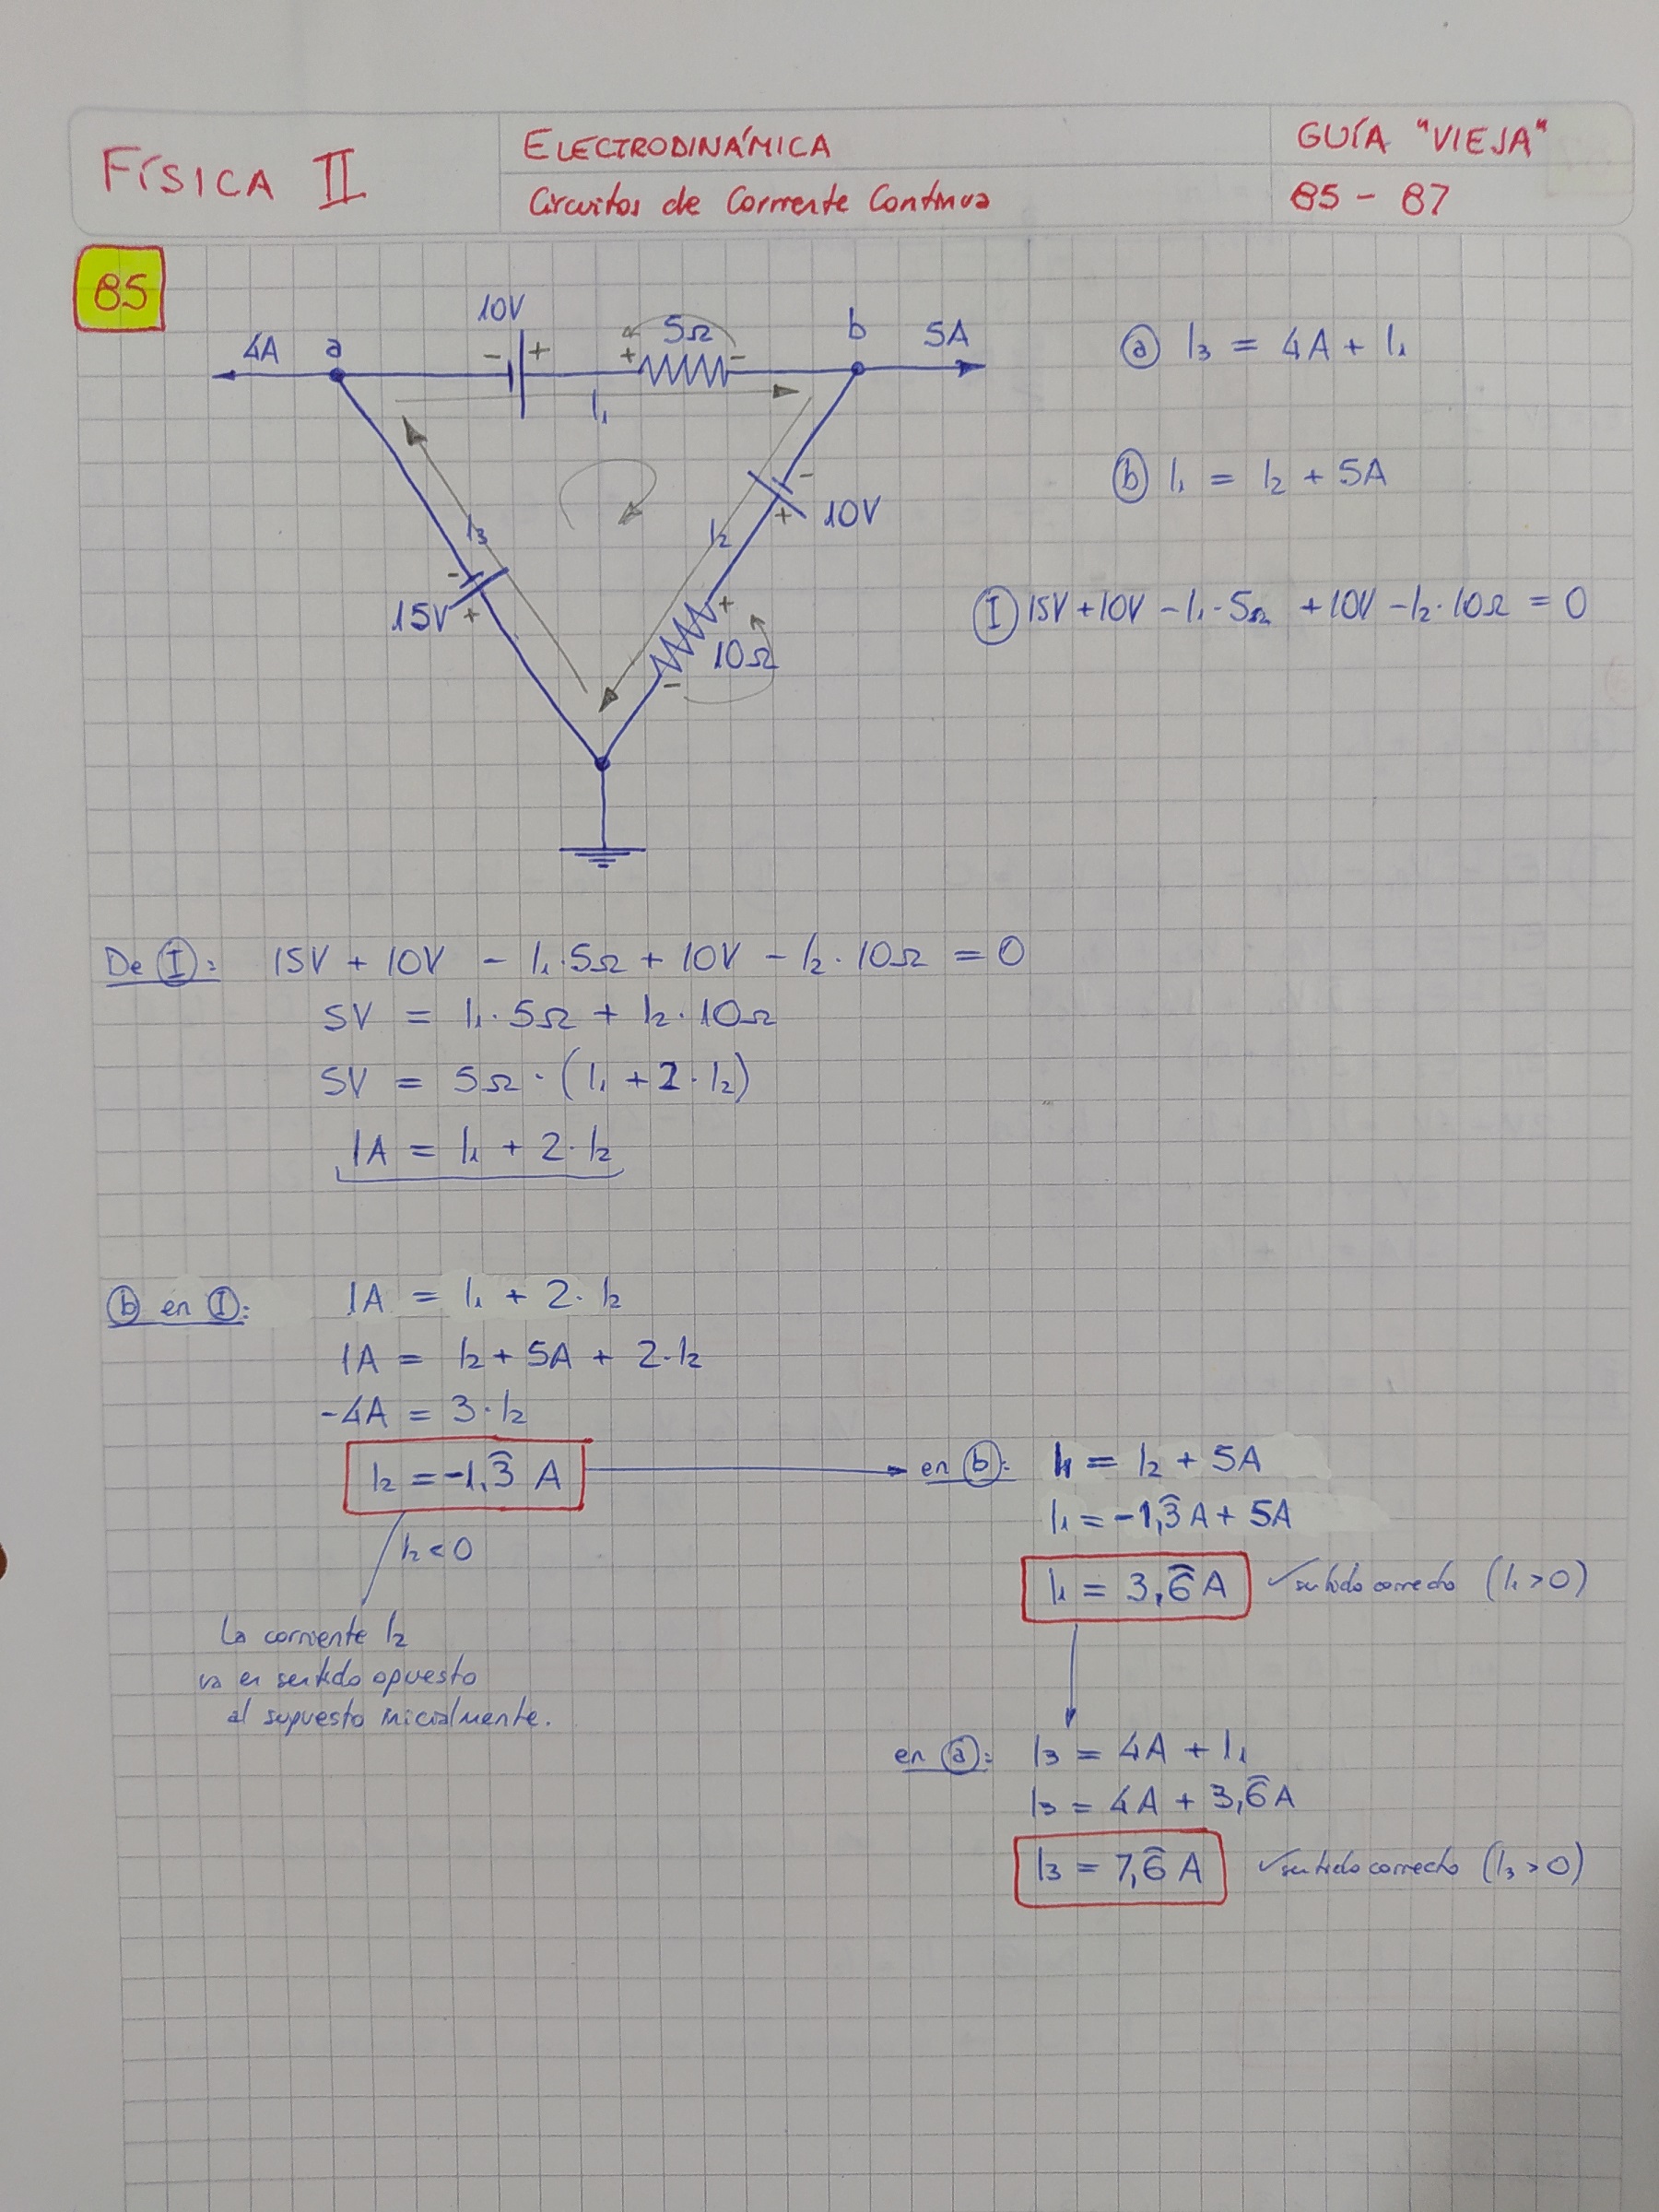 FÍSICA II
ELECTRODINÁMICA
Circuitos de Corriente Continua
GUÍA "VIEJA"
85 - 87
85
10V
5Ω
4A a - + + - b 5A
I₁
I₃
I₂
-
+
10V
-
+
15V
+
-
10Ω
ⓐ I₃ = 4A + I₁
ⓑ I₁ = I₂ + 5A
Ⓘ 15V + 10V - I₁·5Ω + 10V - I₂·10Ω = 0
De Ⓘ: 15V + 10V - I₁·5Ω + 10V - I₂·10Ω = 0
5V = I₁·5Ω + I₂·10Ω
5V = 5Ω·(I₁ + 2·I₂)
1A = I₁ + 2·I₂
ⓑ en Ⓘ: 1A = I₁ + 2·I₂
1A = I₂ + 5A + 2·I₂
-4A = 3·I₂
I₂ = -1,3̂ A
I₂ < 0
La corriente I₂
va en sentido opuesto
al supuesto inicialmente.
en ⓑ: I₁ = I₂ + 5A
I₁ = -1,3̂ A + 5A
I₁ = 3,6̂ A ✓ sentido correcto (I₁ > 0)
en ⓐ: I₃ = 4A + I₁
I₃ = 4A + 3,6̂ A
I₃ = 7,6̂ A ✓ sentido correcto (I₃ > 0)